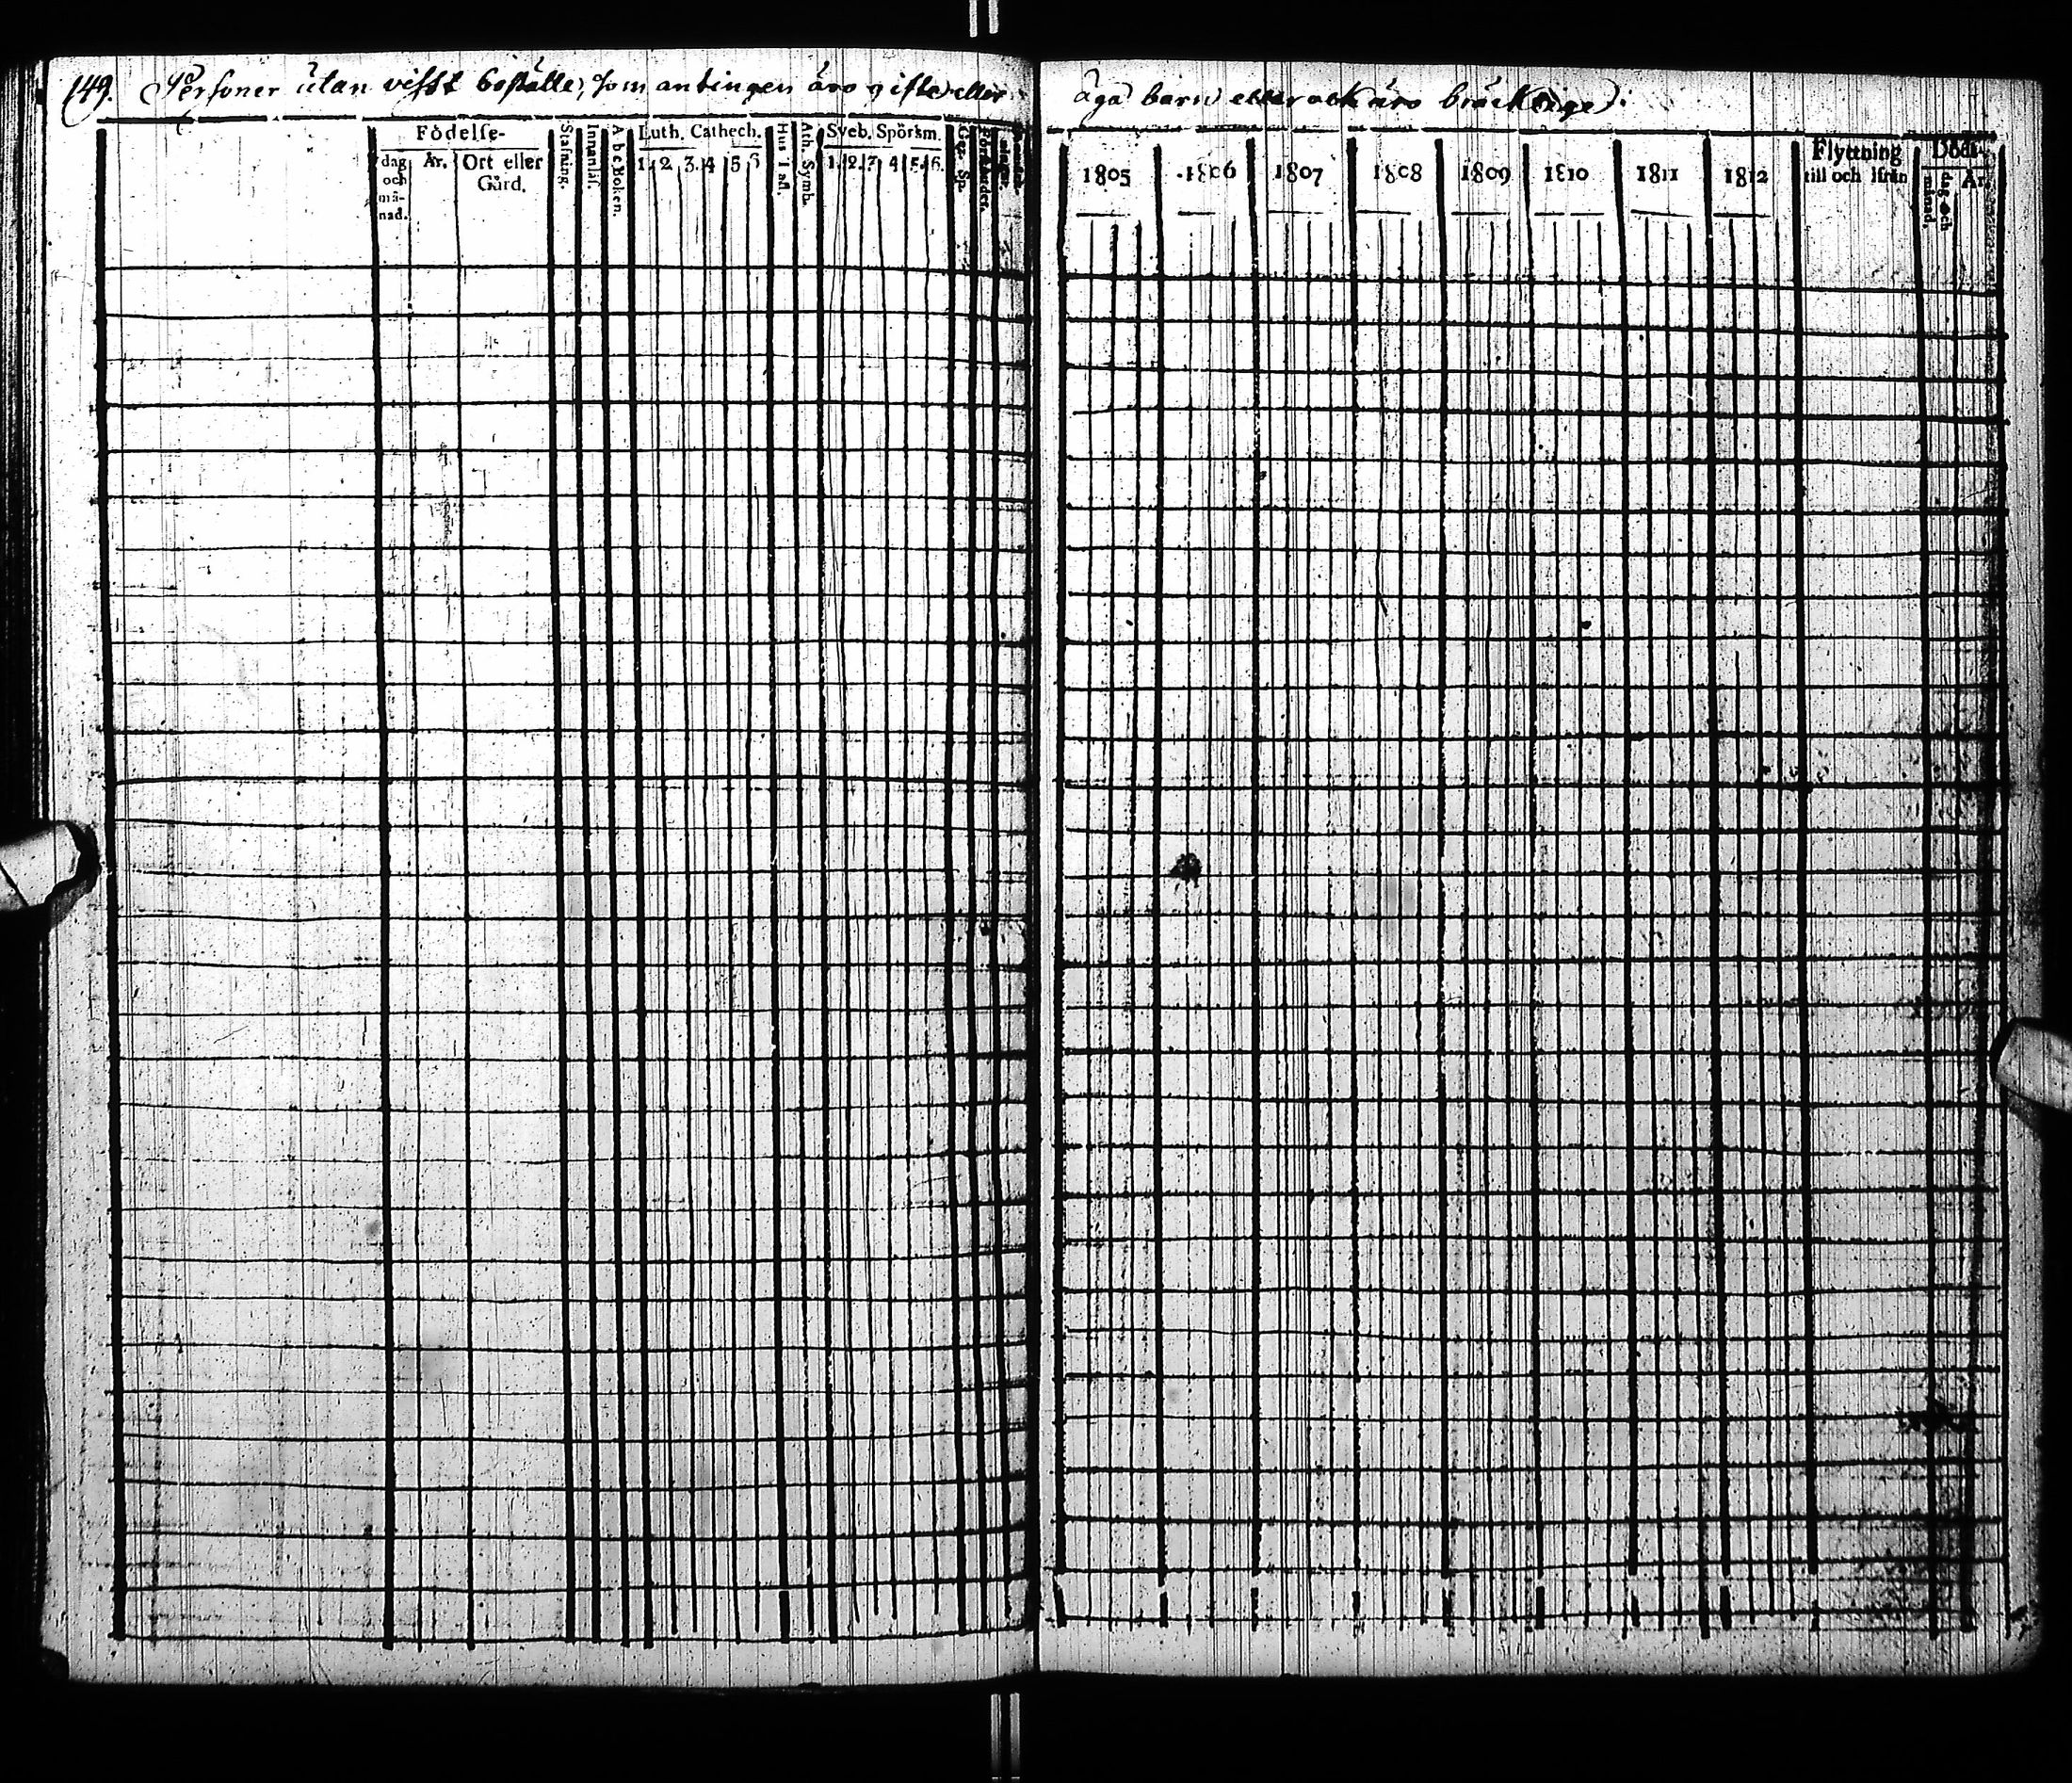 149. Personer utan visst boställe, som antingen äro gifte eller äga barn eller ock äro bräcklige:
Födelse-
dag och må-nad.
År.
Ort eller Gård.
Stafning.
Innanläs.
A be Boken.
Luth. Cathech.
1. 2. 3. 4 5 6
Hus Tafl.
Ath. Symb.
Sveb. Spörsm.
1. 2. 3. 4 5. 6.
1805 1806 1807 1808 1809 1810 1811 1812
Flyttning till och ifrån
Död.
dag och månad.
År.